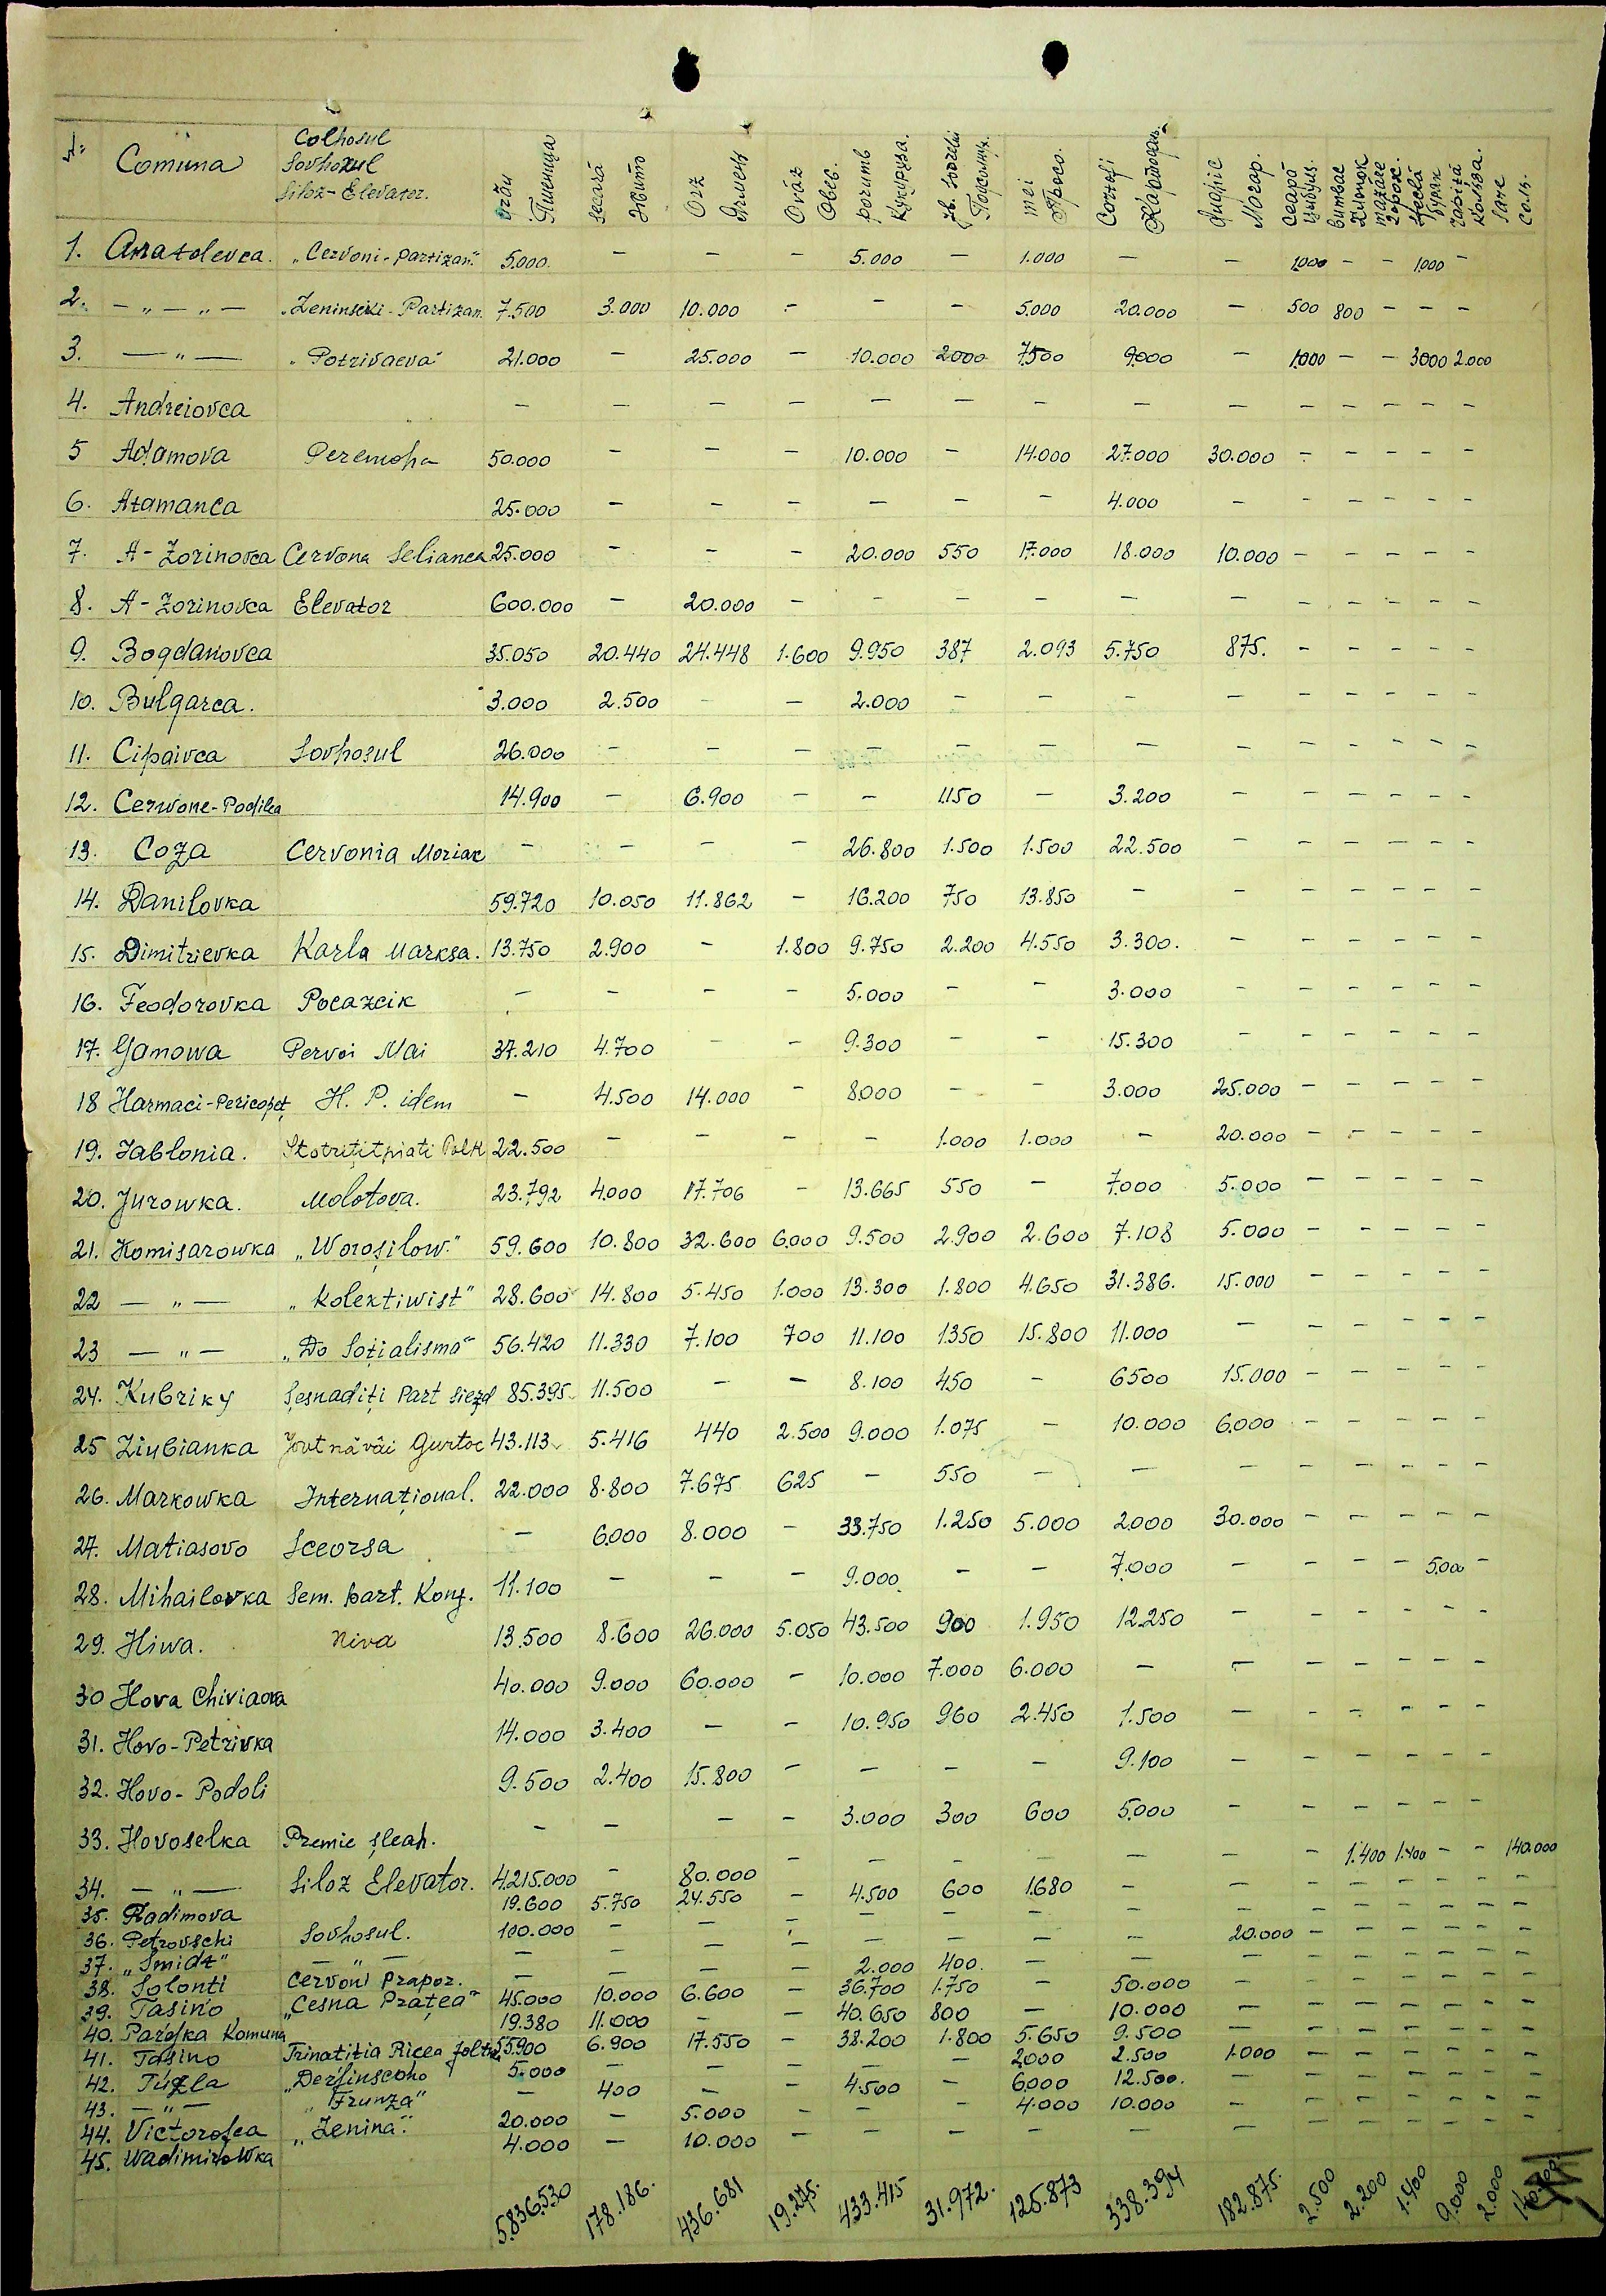 № Comuna Colhosul Sovhozul Siloz-Elevator. grău Пшеница secară Жито Orz Ячмень Ovăz Овес. porumb Кукуруза. fl. soarelui mei Просо. Cartofi Картофель. Magar. ceapă цыбуля. bumbac mazăre sfeclă буряк rapiță sare соль.
1. Anatolevca. „Cervoni-partizan." 5.000. — — — 5.000 — 1.000 — — 1.000 — — 1.000 —
2. — „ — „ — „Leninscki-Partizan. 7.500 3.000 10.000 — — — 5.000 20.000 — 500 800 — — —
3. — „ — „Potrivaeva" 21.000 — 25.000 — 10.000 2000 7.500 9.000 — 1.000 — — 3000 2.000
4. Andreiovca — — — — — — — — — — — — — —
5 Adamova Peremoha 50.000 — — — 10.000 — 14.000 27.000 30.000 — — — — —
6. Atamanca 25.000 — — — — — — 4.000 — — — — — —
7. A-Zorinovca Cervona Selianca 25.000 — — — 20.000 550 17.000 18.000 10.000 — — — — —
8. A-Zorinovca Elevator 600.000 — 20.000 — — — — — — — — — — —
9. Bogdanovca 35.050 20.440 24.448 1.600 9.950 387 2.093 5.750 875. — — — — —
10. Bulgarca. 3.000 2.500 — — 2.000 — — — — — — — — —
11. Cipaivca Sovhosul 26.000 — — — — — — — — — — — — —
12. Cerwone-Podilea 14.900 — 6.900 — — 1.150 — 3.200 — — — — — —
13. Coza Cervonia Moriak — — — — 26.800 1.500 1.500 22.500 — — — — — —
14. Danilovka 59.720 10.050 11.862 — 16.200 750 13.850 — — — — — — —
15. Dimitrievka Karla Marksa. 13.750 2.900 — 1.800 9.750 2.200 4.550 3.300. — — — — — —
16. Feodorovka Pocazcik — — — — 5.000 — — 3.000 — — — — — —
17. Ganowa Pervoi Mai 37.210 4.700 — — 9.300 — — 15.300 — — — — — —
18 Harmaci-Pericopeț H. P. idem — 4.500 14.000 — 8.000 — — 3.000 25.000 — — — — —
19. Jablonia. Stotrițitpiati Polk 22.500 — — — — 1.000 1.000 — 20.000 — — — — —
20. Jurowka. Molotova. 23.792 4.000 17.706 — 13.665 550 — 7.000 5.000 — — — — —
21. Komisarowka „Woroșilow." 59.600 10.800 32.600 6.000 9.500 2.900 2.600 7.108 5.000 — — — — —
22 — „ — „Kolektiwist" 28.600 14.800 5.450 1.000 13.300 1.800 4.650 31.386. 15.000 — — — — —
23 — „ — „Do Soțialisma" 56.420 11.330 7.100 700 11.100 1.350 15.800 11.000 — — — — — —
24. Kubriky Șesnadiți Part Siezd 85.395 11.500 — — 8.100 450 — 6500 15.000 — — — — —
25 Liubianka 43.113 5.416 440 2.500 9.000 1.075 — 10.000 6.000 — — — — —
26. Markowka Internațional. 22.000 8.800 7.675 625 — 550 — — — — — — — —
27. Matiasovo Sceorsa — 6.000 8.000 — 33.750 1.250 5.000 2.000 30.000 — — — — —
28. Mihailovka Sem. part. Kong. 11.100 — — — 9.000 — — 7.000 — — — — 5.000 —
29. Hiwa. Niva 13.500 8.600 26.000 5.050 43.500 900 1.950 12.250 — — — — — —
30 Hova Chiviaova 40.000 9.000 60.000 — 10.000 7.000 6.000 — — — — — — —
31. Hovo-Petrivka 14.000 3.400 — — 10.950 960 2.450 1.500 — — — — — —
32. Hovo-Podoli 9.500 2.400 15.800 — — — — 9.100 — — — — — —
33. Hovoselka Premie șleah. — — — — 3.000 300 600 5.000 — — — — — —
34. — „ — Siloz Elevator. 4.215.000 — 80.000 — — — — — — — 1.400 1.400 — — 140.000
35. Radimova 19.600 5.750 24.550 — 4.500 600 1.680 — — — — — — — —
36. Petrovschi Sovhosul. 100.000 — — — — — — — 20.000 — — — — — —
37. „Smidt" — „ — — — — — — — — — — — — — — — —
38. Solonti Cervoni Prapor. — — — — 2.000 400. — — — — — — — — —
39. Tasino „Cesna Prațea" 45.000 10.000 6.600 — 36.700 1.750 — 50.000 — — — — — — —
40. Parijska Komuna 19.380 11.000 — — 40.650 800 — 10.000 — — — — — — —
41. Tasino Trinatitia Ricea Joltnea 55.900 6.900 17.550 — 38.200 1.800 5.650 9.500 — — — — — — —
42. Tuzla „Derjinscoho 5.000 — — — — — 2.000 2.500 1.000 — — — — — —
43. — „ — „Frunza" — 400 — — 4.500 — 6.000 12.500. — — — — — — —
44. Victorofca „Lenina". 20.000 — 5.000 — — — 4.000 10.000 — — — — — — —
45. Wadimirowka 4.000 — 10.000 — — — — — — — — — — — —
5.836.530 178.186. 436.681 19.275. 433.415 31.972. 125.873 338.394 182.875. 2.500 2.200 1.400 9.000 2.000